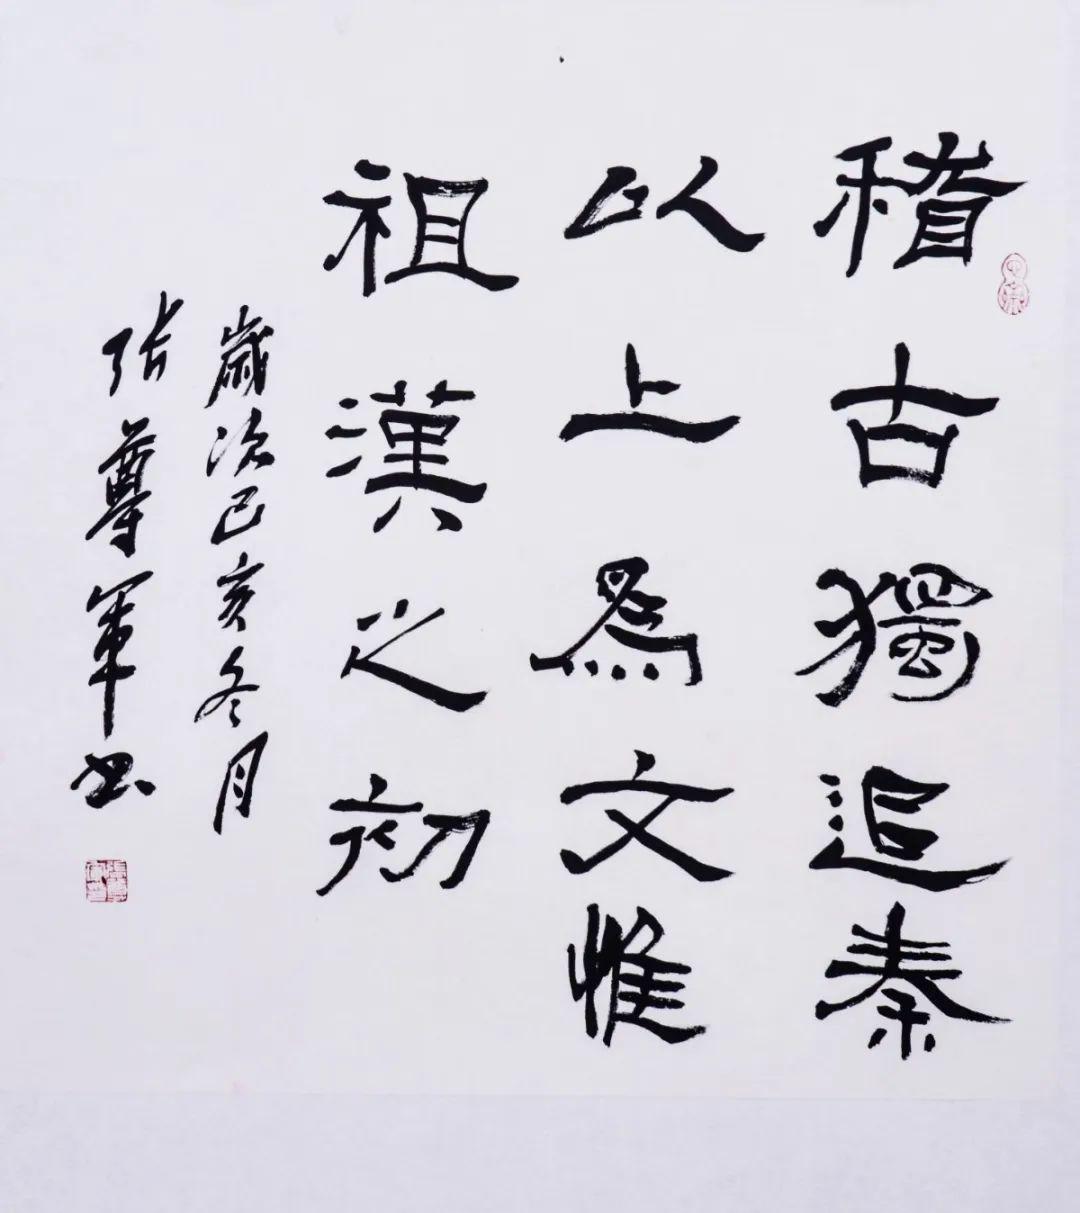 稽古獨追秦
以上為文惟
祖漢之初
歲次己亥冬月
張尊軍書